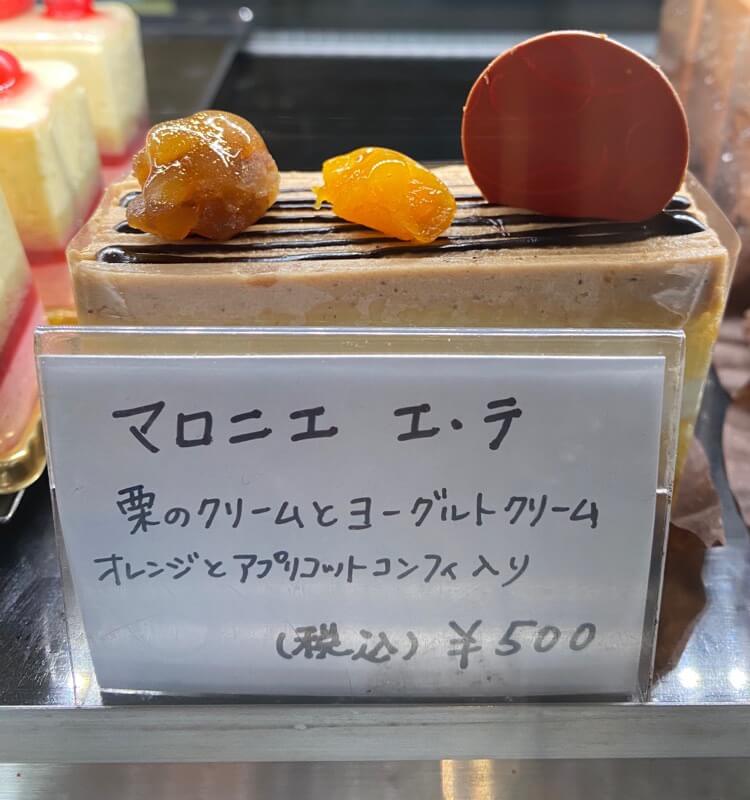 マロニエ エ・テ
栗のクリームとヨーグルトクリーム
オレンジとアプリコットコンフィ入り
(税込) ¥500